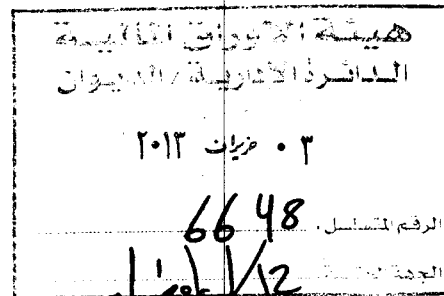 هيئة الأوراق المالية
الدائرة الإدارية / الديوان
٠٣ حزيران ٢٠١٣
الرقم المتسلسل 6648
الجهة